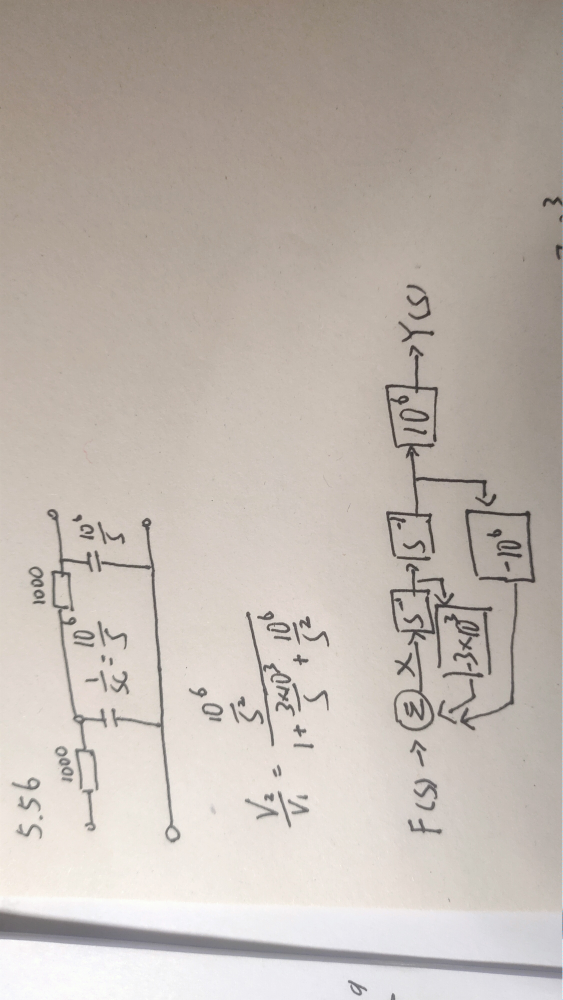 5.56
1000
1/SC = 10⁶/S
1000
10⁶/S
V₂/V₁ = (10⁶/S²)/(1 + 3×10³/S + 10⁶/S²)
F(S) → Σ X → S⁻¹ → S⁻¹ → 10⁶ → Y(S)
-3×10³
-10⁶